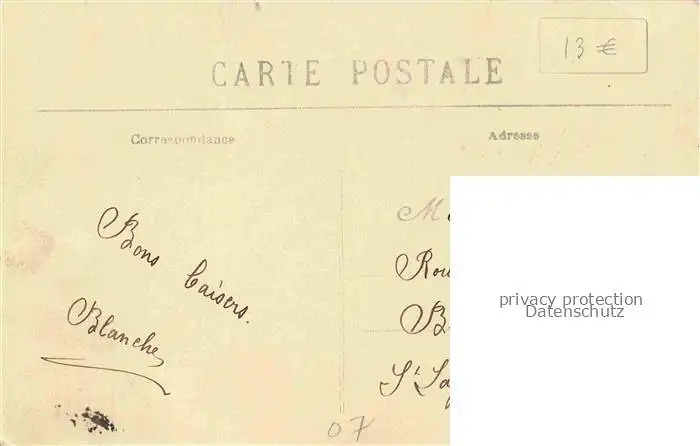 13 €
CARTE POSTALE
Correspondance
Adresse
Bons baisers.
Blanche
M
privacy protection
Datenschutz
07